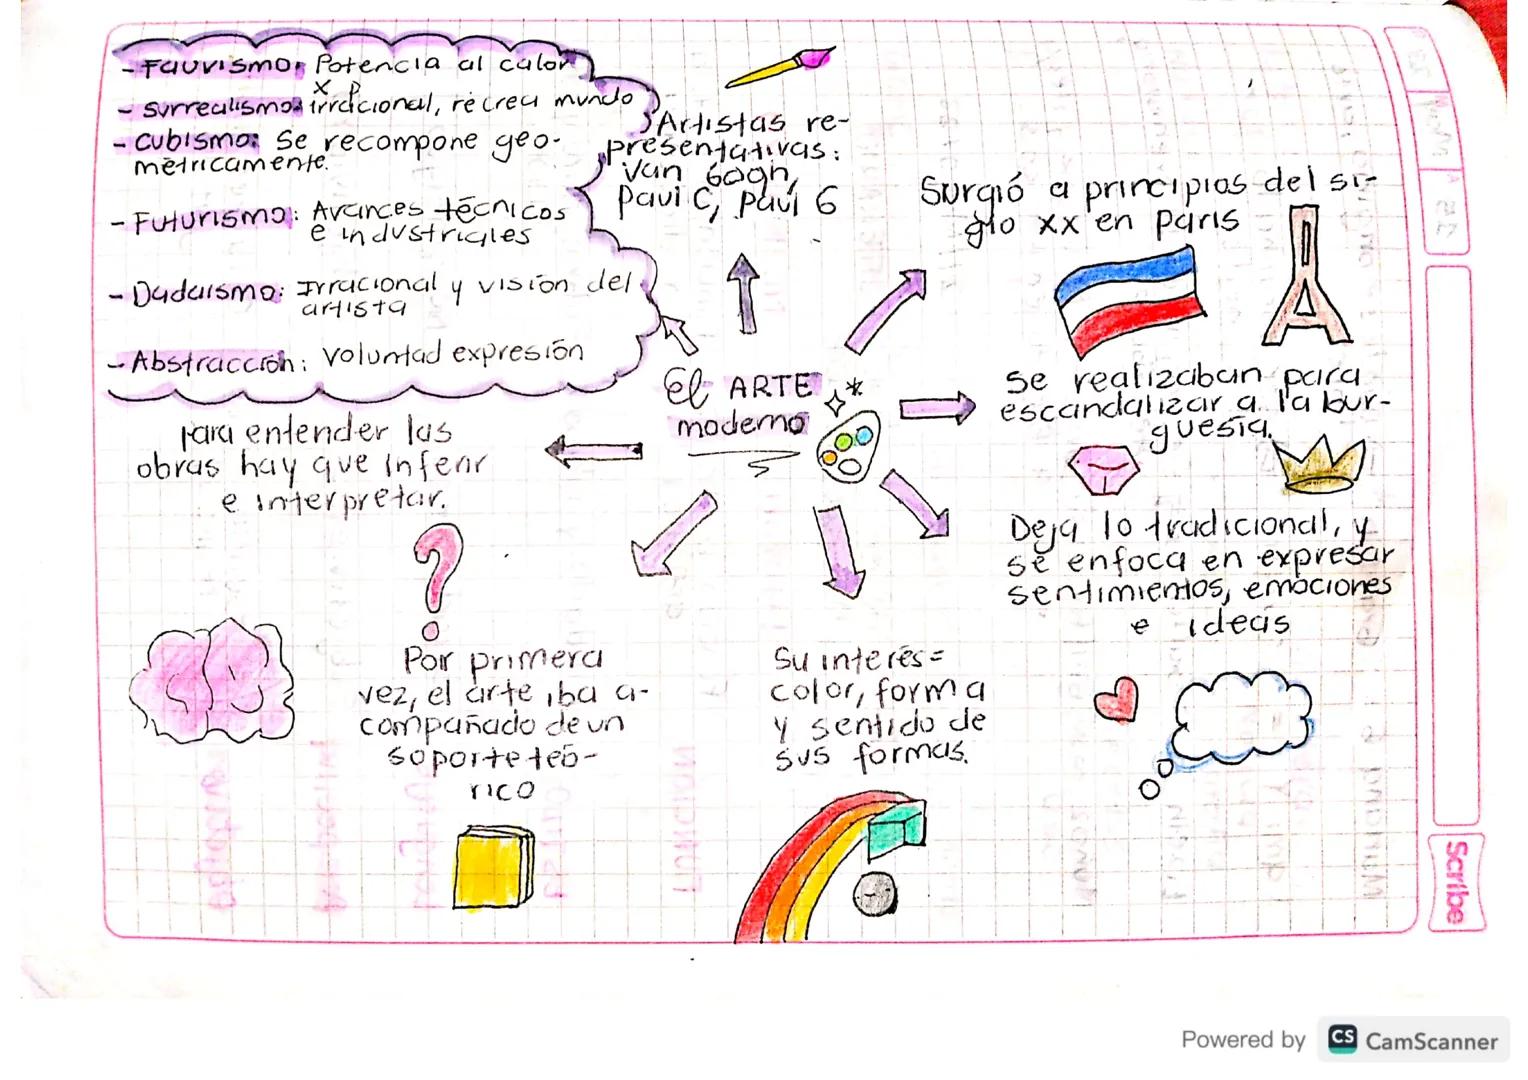 - Fauvismo: Potencia al calor
x p
- Surrealismo: irracional, recrea mundo
- cubismo: Se recompone geo-
métricamente.
- Futurismo: Avances técnicos
e industriales
- Dadaísmo: Irracional y visión del
artista
- Abstracción: voluntad expresión
Artistas re-
presentativas:
Van Gogh,
Paul C, Paul G
Surgió a principios del si-
glo xx en París
El ARTE
moderno
Se realizaban para
escandalizar a la bur-
guesía.
Para entender las
obras hay que inferir
e interpretar.
Deja lo tradicional, y
se enfoca en expresar
sentimientos, emociones
e ideas
Por primera
vez, el arte iba a-
compañado de un
soporte teó-
rico
Su interés=
color, forma
y sentido de
sus formas.
Scribe
Powered by CS CamScanner